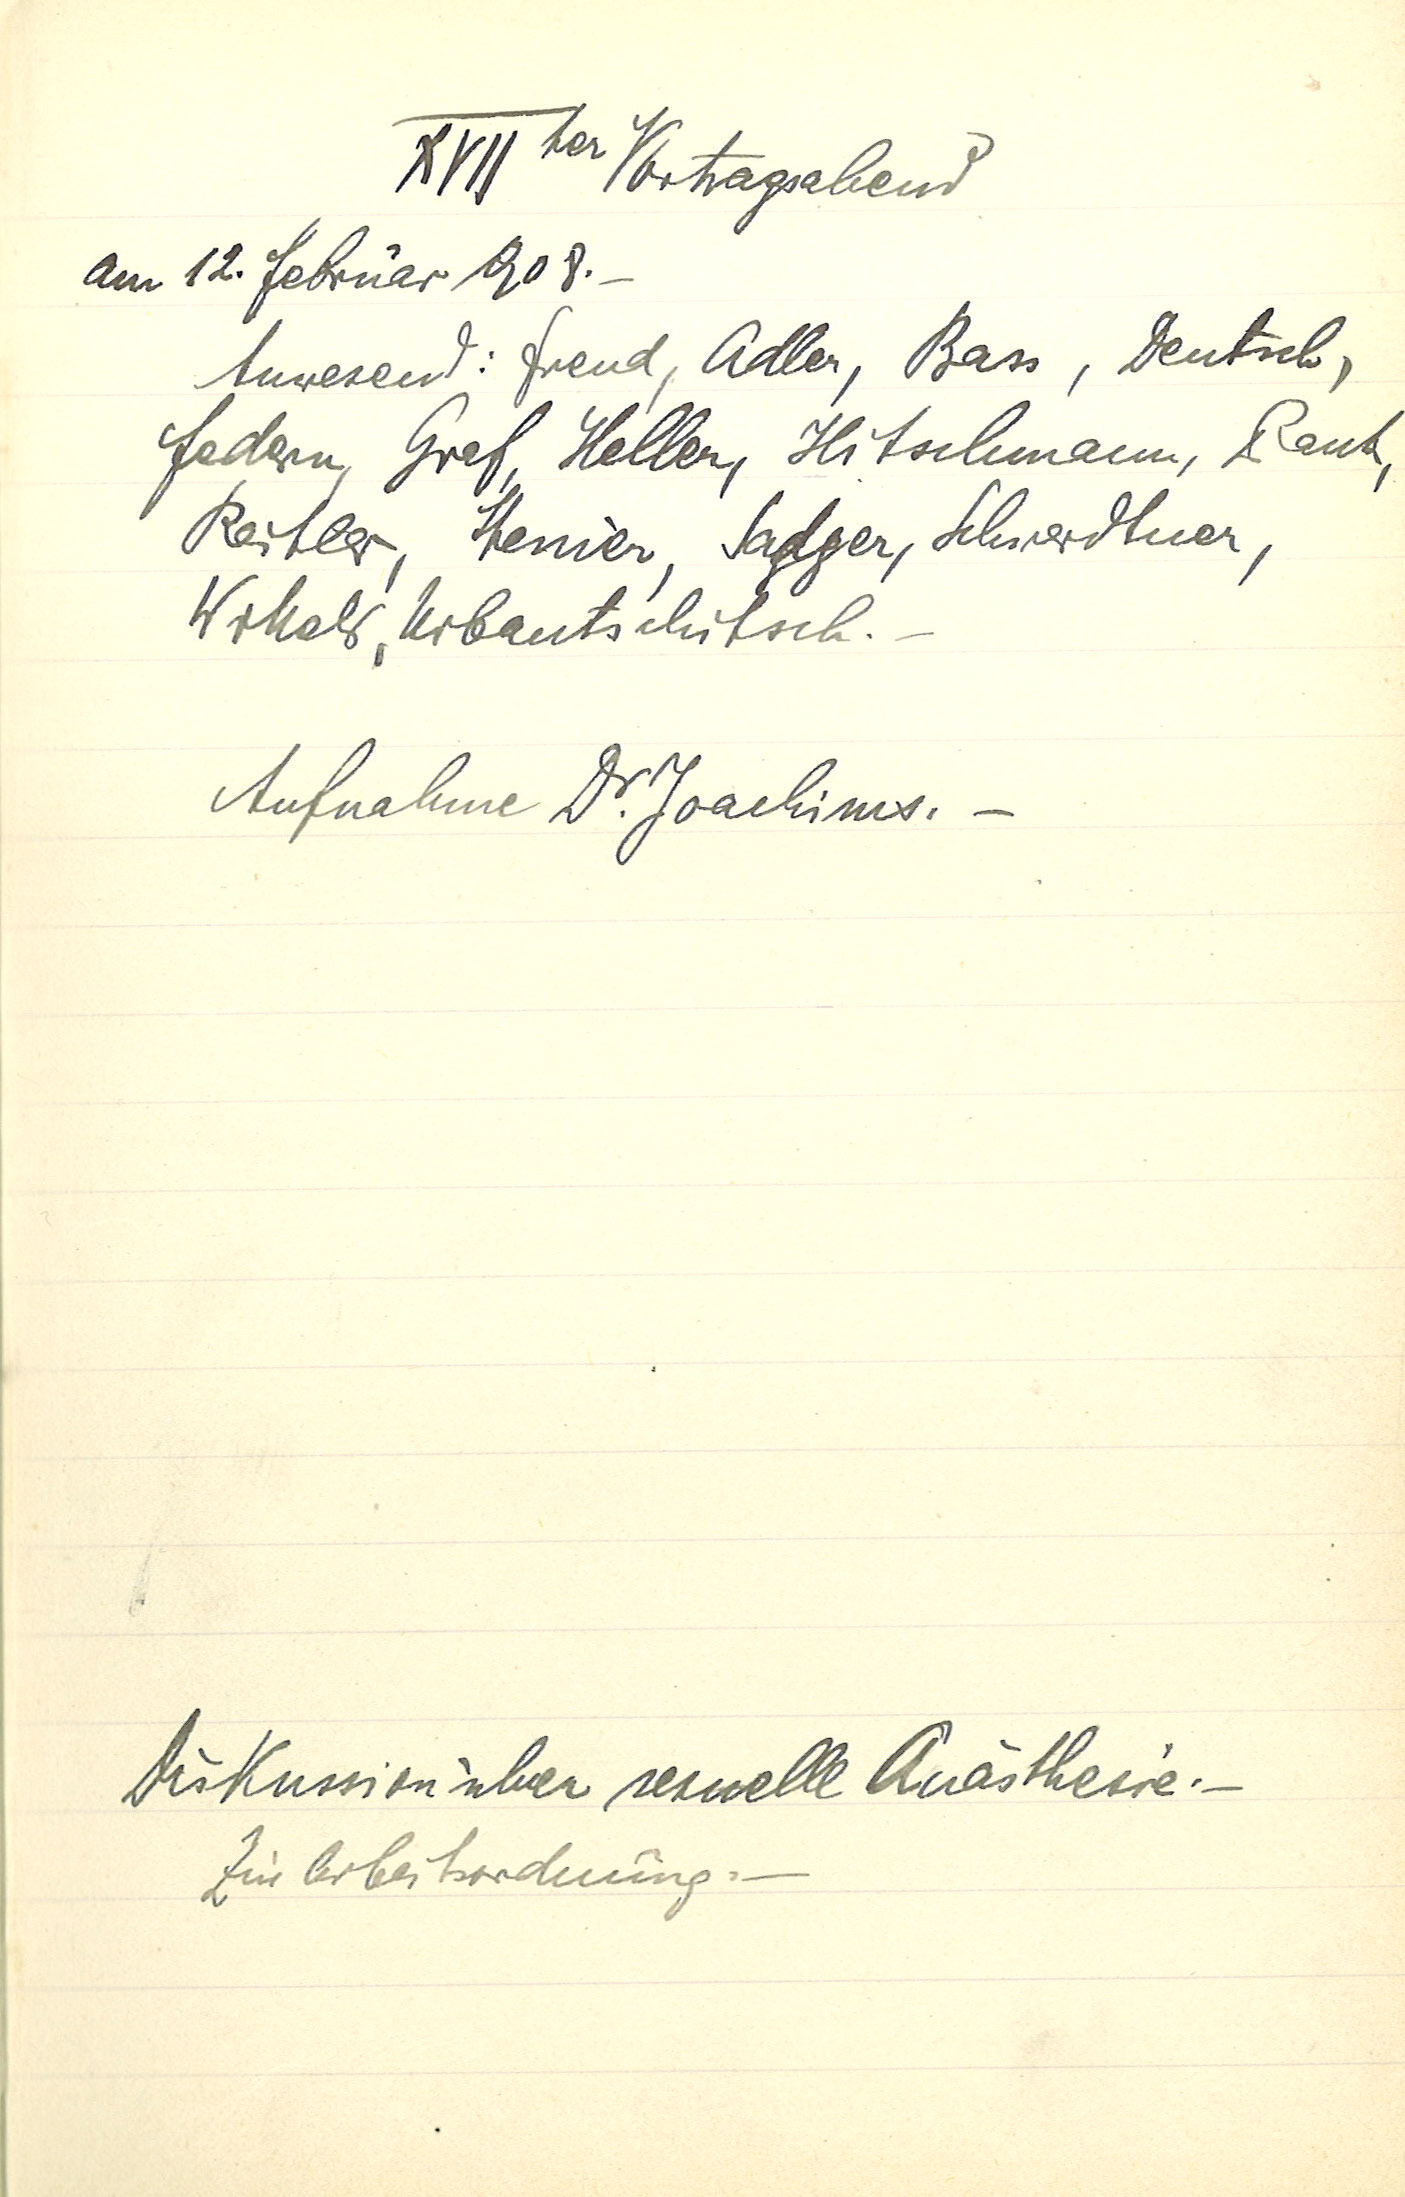 XVII ter Vortragsabend
am 12. Februar 1908. –
Anwesend: Freud, Adler, Bass, Deutsch,
Federn, Graf, Heller, Hitschmann, Rank,
Reitler, Steiner, Sadger, Schwerdtner,
Wittels, Urbantschitsch. –
Aufnahme Dr. Joachims. –
Diskussion über sexuelle Anästhesie. –
Zur Arbeitsordnung. –